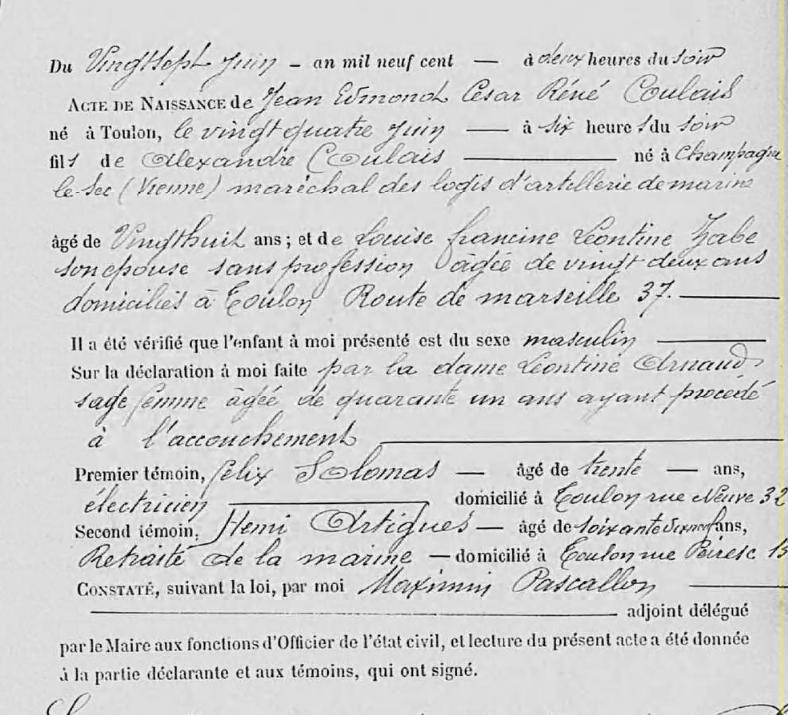 Du Vingt sept Juin – an mil neuf cent — à deux heures du soir
ACTE DE NAISSANCE de Jean Edmond César Réné Coulais
né à Toulon, le vingt quatre Juin — à six heures du soir
fils de Alexandre Coulais — né à Champagné
le Sec (Vienne) maréchal des logis d'artillerie de marine
âgé de Vingt huit ans ; et de Louise francine Léontine
son épouse sans profession âgée de vingt deux ans
domiciliés à Toulon Route de marseille 37. —
Il a été vérifié que l'enfant à moi présenté est du sexe masculin —
Sur la déclaration à moi faite par la dame Léontine Arnaud
sage femme âgée de quarante un ans ayant procédé
à l'accouchement —
Premier témoin, félix Solomas — âgé de trente — ans,
électricien — domicilié à Toulon rue Neuve 32
Second témoin, Henri Artigues — âgé de ans,
Retraité de la marine — domicilié à Toulon rue Peiresc
CONSTATÉ, suivant la loi, par moi Maximin Pascallon —
— adjoint délégué
par le Maire aux fonctions d'Officier de l'état civil, et lecture du présent acte a été donnée
à la partie déclarante et aux témoins, qui ont signé.